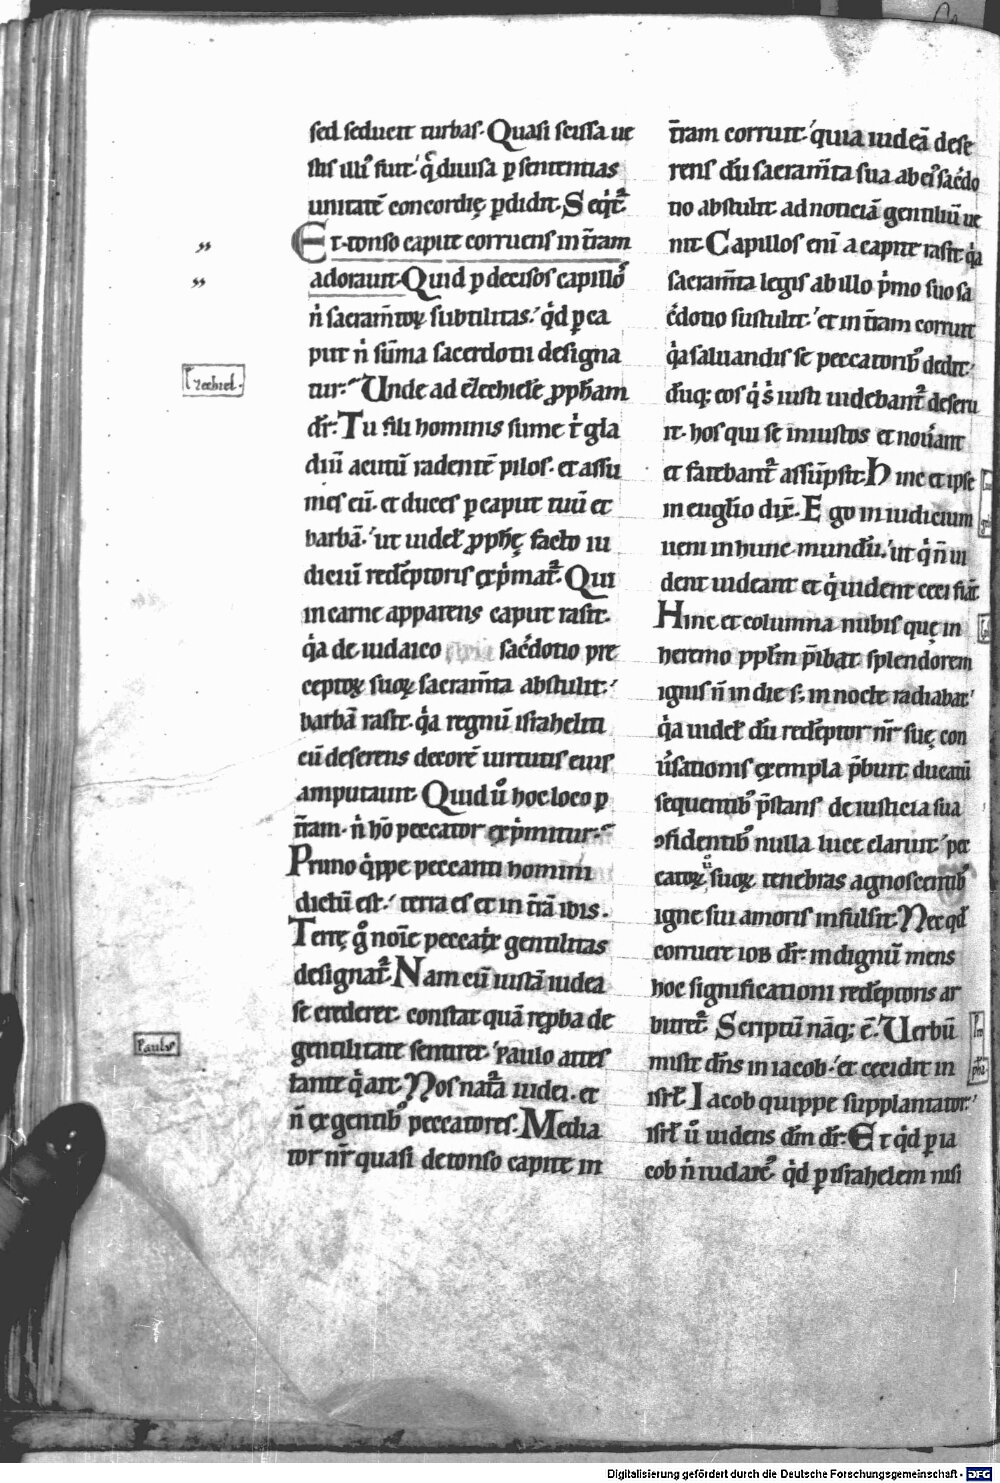 sed seduceret turbas. Quasi scissa ue
stis illiꝰ fuit. q̄ diuisa ꝑ sententias
unitatē concordię ꝑdidit. Seqͥt᷑.
Et tonso capite corruens in t̄ram
adorauit. Quid ꝑ decisos capilloſ
n̄ sacram̄toꝝ subtilitas. qͥd ꝑ ca
put n̄ sum̄a sacerdotii designa
tur. Unde ad ezechielē ꝓph̄am
dr̄. Tu fili hominis sume tͥ gla
diū acutū radentē pilos. et assu
mes eū. et duces ꝑ caput tuū et
barbā. ut uidel; ꝓph̄ę facto iu
diciū redēptoris exp̄mat᷑. Qui
in carne apparens caput rasit.
qͥa de iudaico sac̄dotio pre
ceptoꝝ suoꝝ sacram̄ta abstulit.
barbā rasit. qͥa regnū israheliti
cū deserens decorē uirtutis eius
amputauit. Quid ū hoc loco ꝑ
t̄ram. n̄ hō peccator exp̄mitur.
Primo qͥppe peccanti homini
dictū est. terra es et in t̄rā ibis.
Terrę gͦ noīe peccatrix gentilitas
designat᷑. Nam cū iustā iudea
se crederet. constat quā reꝓba de
gentilitate sentiret. Paulo attes
tante qͥ ait. Nos natᷓa iudei. et
n̄ ex gentibꝰ peccatores. Media
tor nr̄ quasi detonso capite in
t̄ram corruit. quia iudeā dese
rens dū sacram̄ta sua ab eiꝰ sac̄do
tio abstulit ad noticiā gentiliū ue
nit. Capillos enī a capite rasit. qͥa
sacram̄ta legis ab illo p̄mo suo sa
c̄dotio sustulit. et in t̄ram corruit
qͥa saluandis se peccatoribꝰ dedit.
dūq; eos qͥ sͥ iusti uidebant᷑ deseru
it. hos qui se iniustos et nou̾ant
et fatebant᷑ assūpsit. Hinc et ipse
in euglio dix̄. Ego in iudicium
ueni in hunc mundū. ut qͥ n̄ ui
dent uideant et qͥ uident ceci fiāt.
Hinc et columna nubis quę in
heremo pplm p̄ibat. splendorem
ignis n̄ in die s; in nocte radiabat.
qͥa uidel; dū redēptor nr̄ suę con
u̾sationis exempla p̄buit. ducatū
sequentibꝰ p̄stans de iusticia sua
ꝯfidentibꝰ nulla luce claruit. pec
catoꝝ ů suoꝝ tenebras agnoscentibꝰ
igne sui amoris infulsit. Nec qd̄
corruere iob dr̄. indignū mens
hoc significationi redēptoris ar
biret᷑. Scriptū nāq; ē. Uerbū
misit dn̄s in iacob. et cecidit in
isrl̄. Iacob quippe supplantator.
isrl̄ ū uidens dm̄ dr̄. Et qͥd ꝑ ia
cob n̄ iudaic᷑. qͥd ꝑ israhelem nisi
Ezechiel.
Paulꝰ
Digitalisierung gefördert durch die Deutsche Forschungsgemeinschaft - DFG